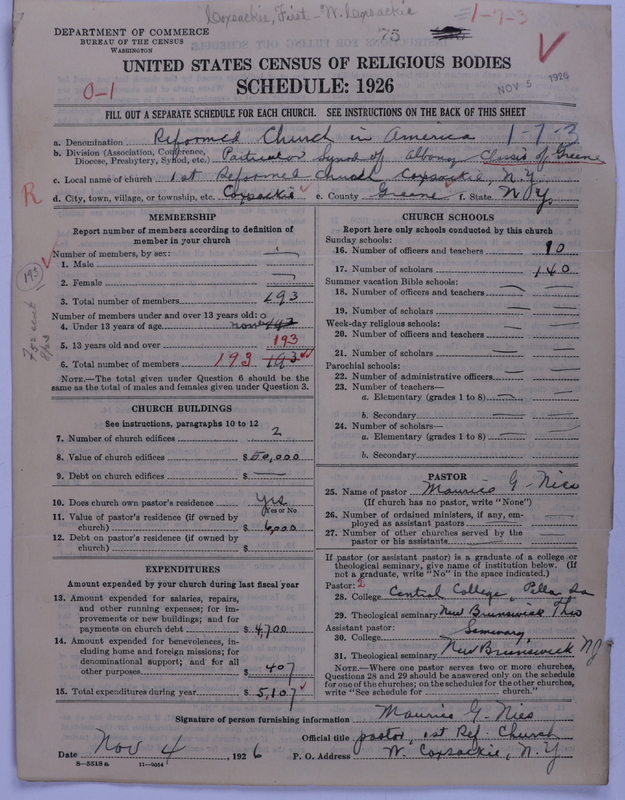 Coxsackie, First - W. Coxsackie
=1-7-3
75
DEPARTMENT OF COMMERCE
BUREAU OF THE CENSUS
WASHINGTON
UNITED STATES CENSUS OF RELIGIOUS BODIES
SCHEDULE: 1926
NOV 5 1926
0-1
FILL OUT A SEPARATE SCHEDULE FOR EACH CHURCH. SEE INSTRUCTIONS ON THE BACK OF THIS SHEET
a. Denomination Reformed Church in America 1-7-3
b. Division (Association, Conference, Diocese, Presbytery, Synod, etc.) Particular Synod of Albany Classis of Greene
c. Local name of church 1st Reformed Church Coxsackie, N.Y.
R
d. City, town, village, or township, etc. Coxsackie e. County Greene f. State N.Y.
MEMBERSHIP
Report number of members according to definition of
member in your church
Number of members, by sex:
1. Male
2. Female
3. Total number of members 193
193
Number of members under and over 13 years old:
4. Under 13 years of age none 193
5. 13 years old and over 193
6. Total number of members 193 193
NOTE.—The total given under Question 6 should be the
same as the total of males and females given under Question 3.
CHURCH BUILDINGS
See instructions, paragraphs 10 to 12
7. Number of church edifices 2
8. Value of church edifices $50,000
9. Debt on church edifices $
10. Does church own pastor's residence Yes
(Yes or No)
11. Value of pastor's residence (if owned by
church) $ 6,000
12. Debt on pastor's residence (if owned by
church) $
EXPENDITURES
Amount expended by your church during last fiscal year
13. Amount expended for salaries, repairs,
and other running expenses; for im-
provements or new buildings; and for
payments on church debt $4,700
14. Amount expended for benevolences, in-
cluding home and foreign missions; for
denominational support; and for all
other purposes $ 407
15. Total expenditures during year $5,107
CHURCH SCHOOLS
Report here only schools conducted by this church
Sunday schools:
16. Number of officers and teachers 10
17. Number of scholars 140
Summer vacation Bible schools:
18. Number of officers and teachers
19. Number of scholars
Week-day religious schools:
20. Number of officers and teachers
21. Number of scholars
Parochial schools:
22. Number of administrative officers
23. Number of teachers—
a. Elementary (grades 1 to 8)
b. Secondary
24. Number of scholars—
a. Elementary (grades 1 to 8)
b. Secondary
PASTOR
25. Name of pastor Maurice G. Nies
(If church has no pastor, write "None")
26. Number of ordained ministers, if any, em-
ployed as assistant pastors
27. Number of other churches served by the
pastor or his assistants
If pastor (or assistant pastor) is a graduate of a college or
theological seminary, give name of institution below. (If
not a graduate, write "No" in the space indicated.)
Pastor: 2
28. College Central College, Pella Ia
29. Theological seminary New Brunswick Theo
Assistant pastor: Seminary,
30. College
31. Theological seminary New Brunswick NJ
NOTE.—Where one pastor serves two or more churches,
Questions 28 and 29 should be answered only on the schedule
for one of the churches; on the schedules for the other churches,
write "See schedule for church."
Signature of person furnishing information Maurice G. Nies
Official title pastor, 1st Ref. Church
Date Nov 4, 1926 P. O. Address W. Coxsackie, N.Y
8—5518 a 11—9054